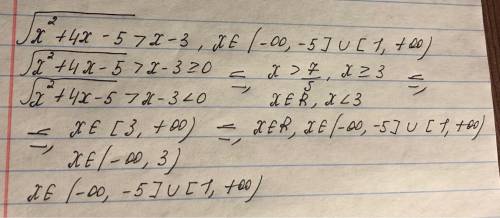 √x²+4x-5 > x-3, x∈(-∞, -5] ∪ [1, +∞)
√x²+4x-5 > x-3 ≥ 0 ⇆ x > 7/5, x ≥ 3 ⇆
√x²+4x-5 > x-3 < 0 x∈R, x < 3
⇆ x∈[3, +∞) ⇆ x∈R, x∈(-∞, -5] ∪ [1, +∞)
x∈(-∞, 3)
x∈(-∞, -5] ∪ [1, +∞)